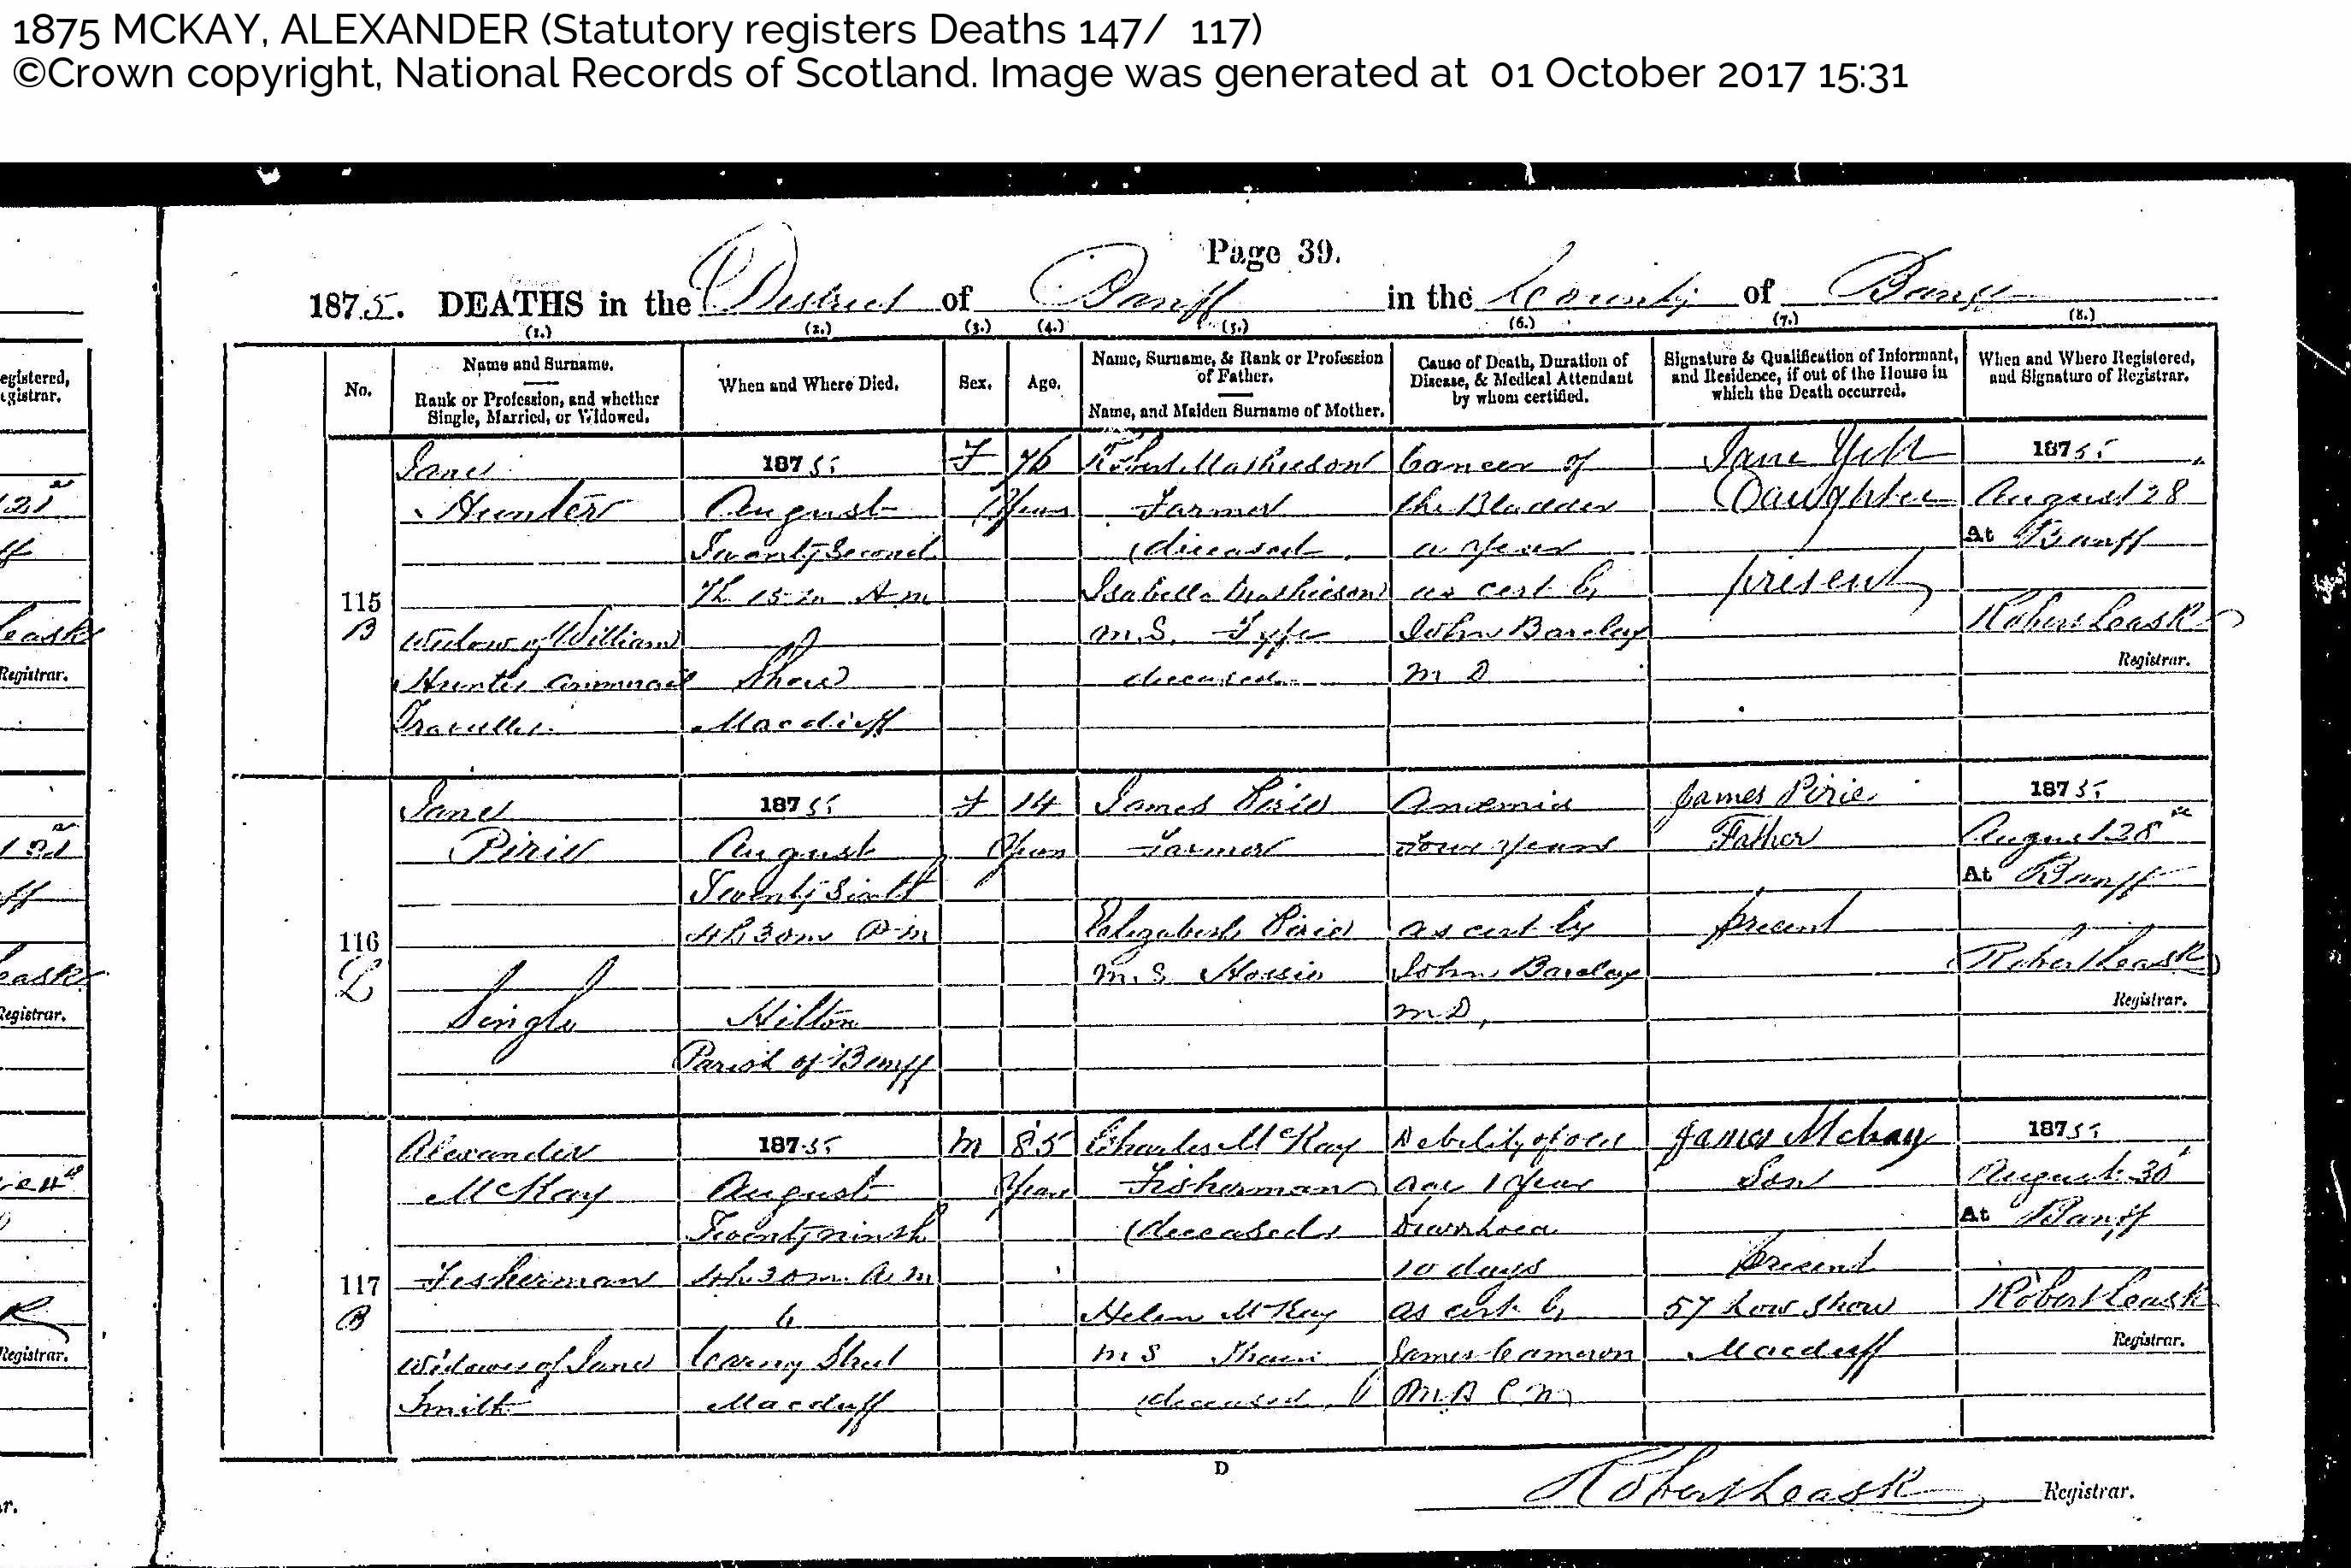 1875 MCKAY, ALEXANDER (Statutory registers Deaths 147/ 117)
©Crown copyright, National Records of Scotland. Image was generated at 01 October 2017 15:31
Page 39.
1875. DEATHS in the District of Banff in the County of Banff
(1.) (2.) (3.) (4.) (5.) (6.) (7.) (8.)
egistered,
egistrar.
No.
Name and Surname.
Rank or Profession, and whether
Single, Married, or Widowed.
When and Where Died.
Sex.
Age.
Name, Surname, & Rank or Profession
of Father.
Name, and Maiden Surname of Mother.
Cause of Death, Duration of
Disease, & Medical Attendant
by whom certified.
Signature & Qualification of Informant,
and Residence, if out of the House in
which the Death occurred.
When and Where Registered,
and Signature of Registrar.
115
B
Jane
Hunter
Widow of William
Hunter Commercial
Traveller
1875
August
Twenty Second
7h 15m A.M
Shore
Macduff
F
76
Years
Robert Mathieson
Farmer
(deceased
Isabella Mathieson
M.S. Fyfe
deceased
Cancer of
the Bladder
a year
as cert by
John Barclay
M D
Jane
Daughter
present
1875
August 28
At Banff
Robert Leask
Registrar.
116
L
Jane
Pirie
Single
1875
August
Twenty Sixth
4h 30m P.M
Hilton
Parish of Banff
F
14
Years
James Pirie
Farmer
Elizabeth Pirie
M.S
Anæmia
Four years
as cert by
John Barclay
M D,
James Pirie
Father
present
1875
August 28
At Banff
Robert Leask
Registrar.
117
B
Alexander
McKay
Fisherman
Widower of Jane
Smith
1875
August
Twenty ninth
4h. 30m. A.M
6
Macduff
M
85
Years
Charles McKay
Fisherman
(deceased)
Helen McKay
M S
(deceased)
Debility of old
age 1 Year
Diarrhoea
10 days
as cert by
James Cameron
James Mckay
Son
present
57 Low Shore
Macduff
1875
August 30
At Banff
Robert Leask
Registrar.
D
Robert Leask Registrar.